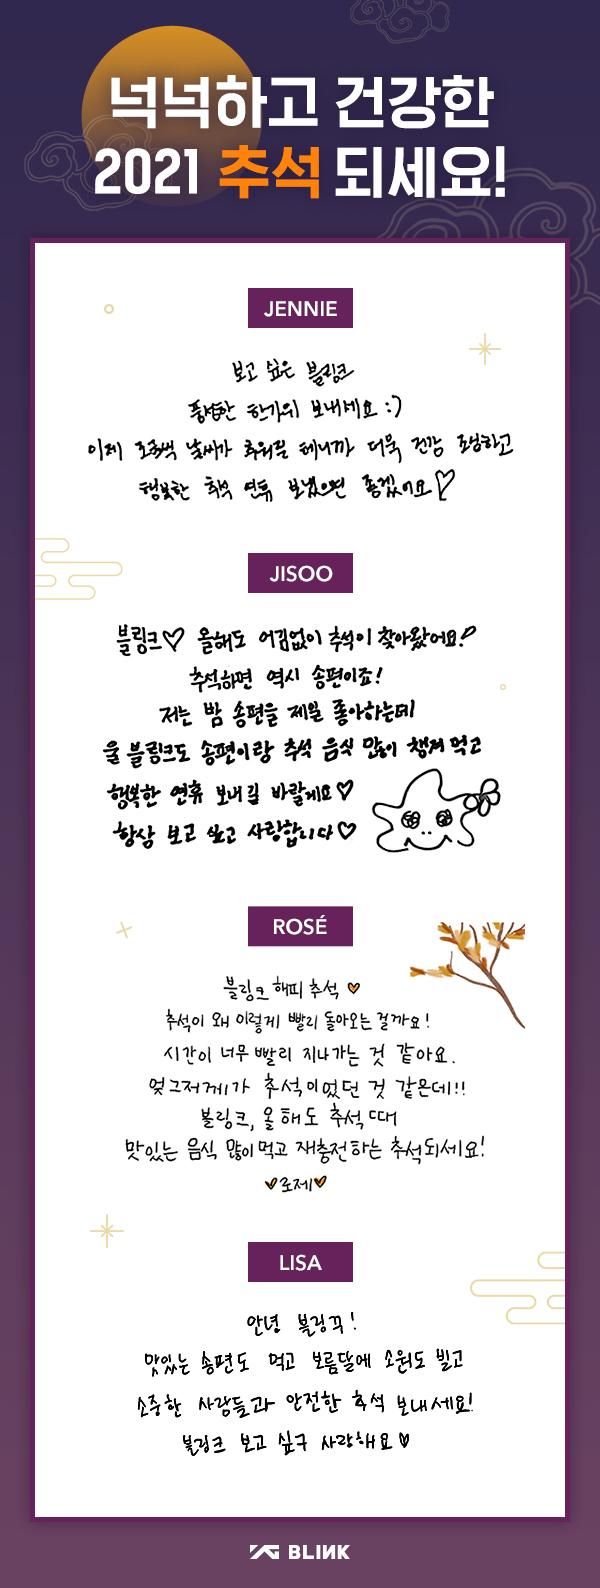 넉넉하고 건강한
2021 추석 되세요!
JENNIE
보고 싶은 블링크
풍성한 한가위 보내세요 :)
이제 조금씩 날씨가 추워질 테니까 더욱 건강 조심하고
행복한 추석 연휴 보냈으면 좋겠어요♡
JISOO
블링크♡ 올해도 어김없이 추석이 찾아왔어요!
추석하면 역시 송편이죠!
저는 밤 송편을 제일 좋아하는데
울 블링크도 송편이랑 추석 음식 많이 챙겨 먹고
행복한 연휴 보내길 바랄게요♡
항상 보고 싶고 사랑합니다♡
ROSÉ
블링크 해피 추석 ♥
추석이 왜 이렇게 빨리 돌아오는 걸까요!
시간이 너무 빨리 지나가는 것 같아요.
엊그저께가 추석이었던 것 같은데!!
블링크, 올해도 추석 때
맛있는 음식 많이 먹고 재충전하는 추석되세요!
♥로제♥
LISA
안녕 블링꾸!
맛있는 송편도 먹고 보름달에 소원도 빌고
소중한 사람들과 안전한 추석 보내세요!
블링크 보고 싶구 사랑해요♡
YG BLINK